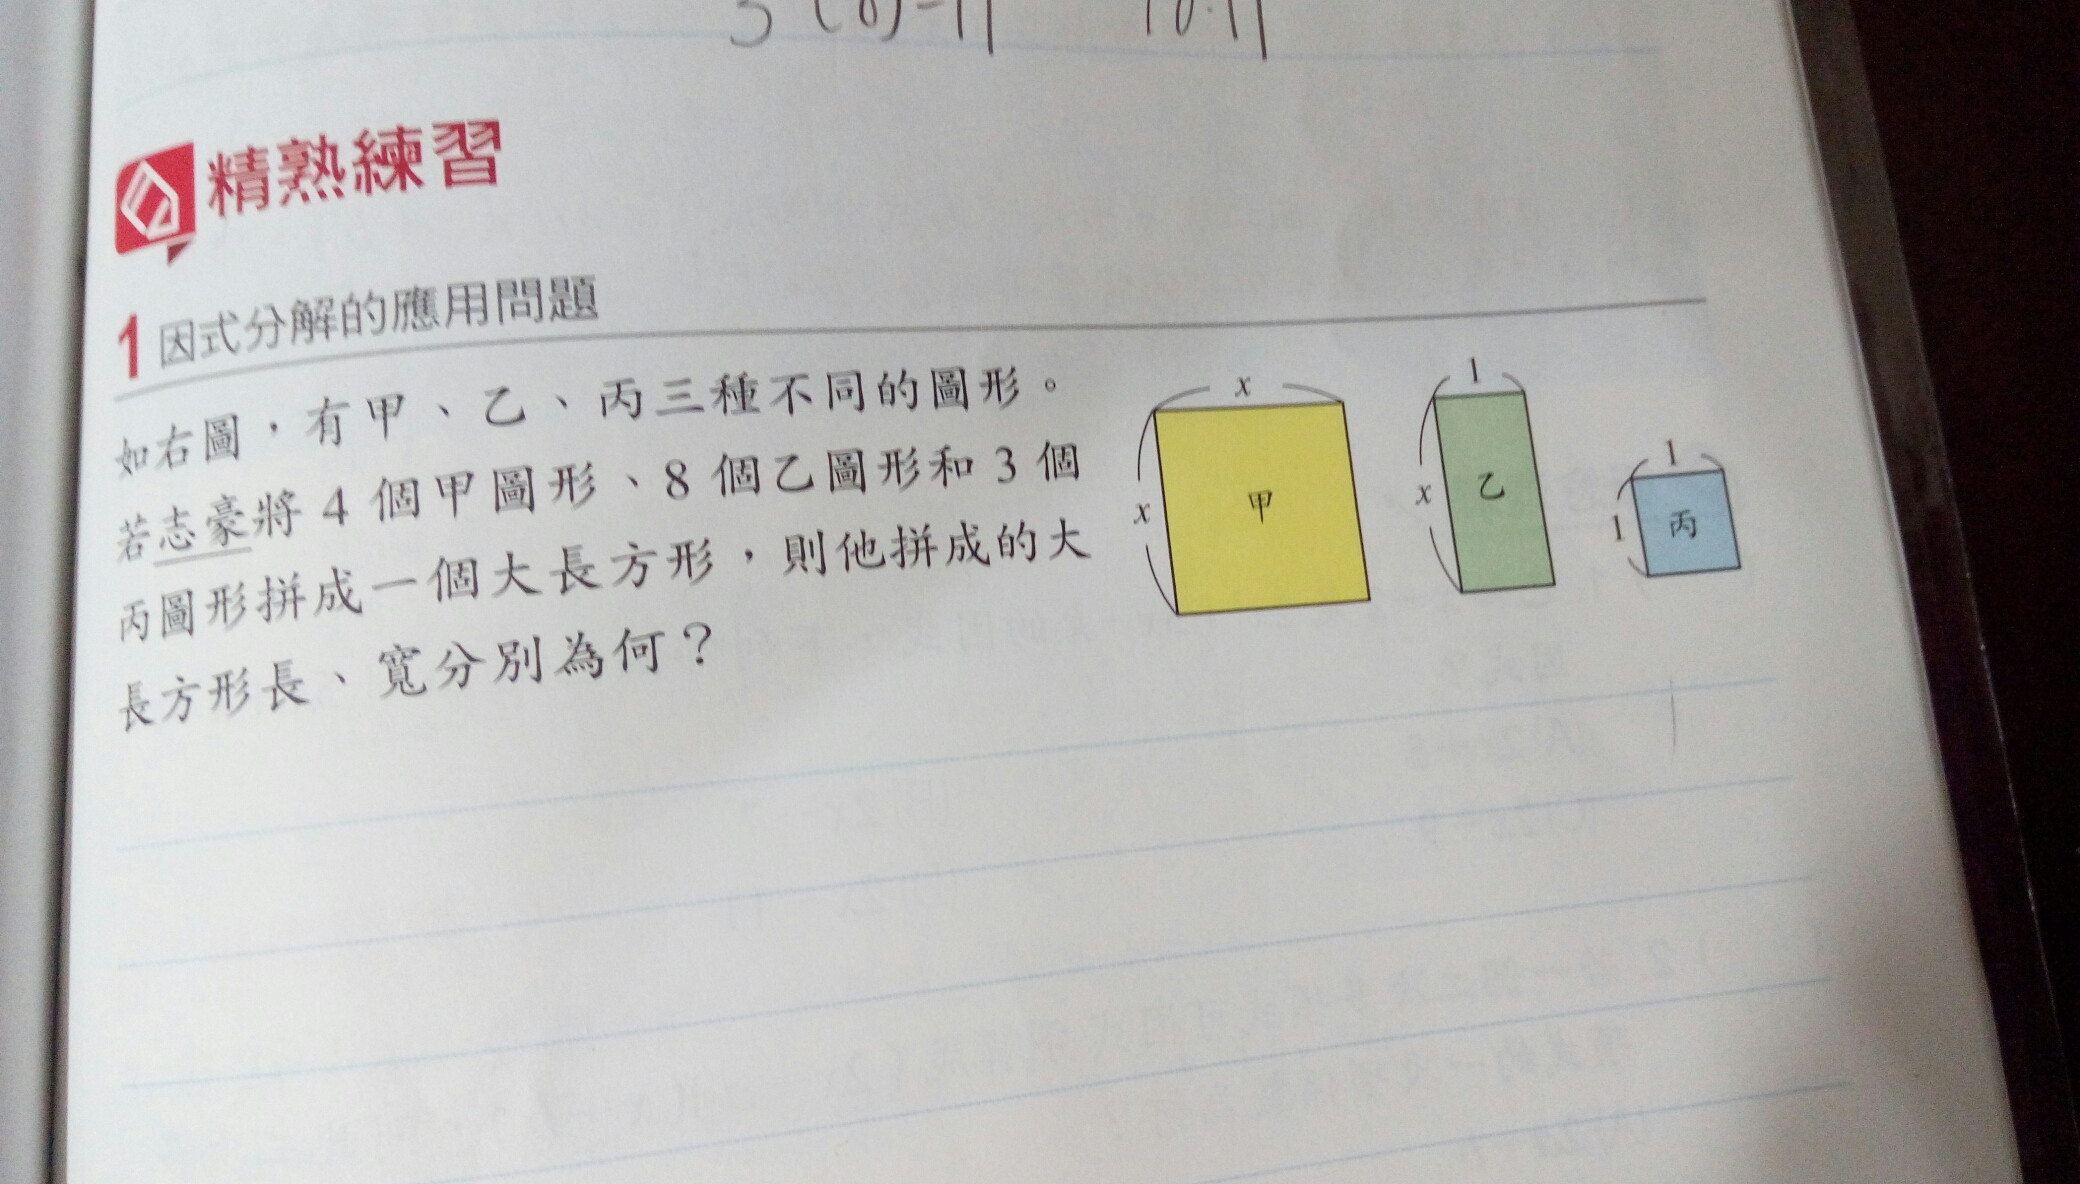 精熟練習
1 因式分解的應用問題
如右圖，有甲、乙、丙三種不同的圖形。
若志豪將 4 個甲圖形、8 個乙圖形和 3 個
丙圖形拼成一個大長方形，則他拼成的大
長方形長、寬分別為何？
x
x
甲
1
x
乙
1
1
丙